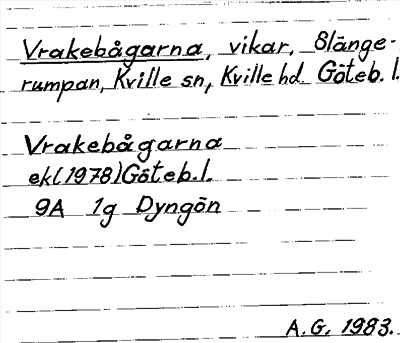 Vrakebågarna, vikar, Slänge-
rumpan, Kville sn, Kville hd. Göteb. l.
Vrakebågarna
ek(1978)Göteb.l.
9A 1g Dyngön
A.G. 1983.